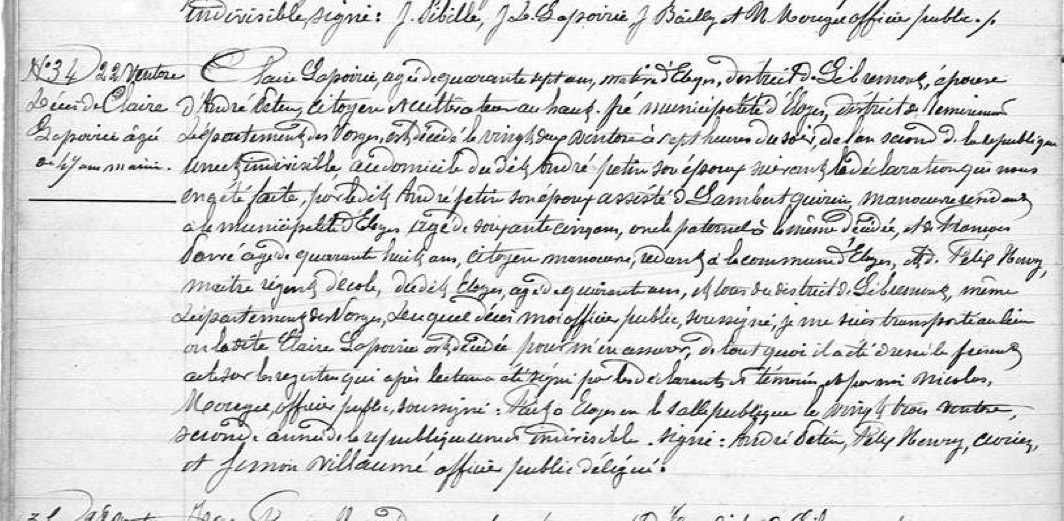 indivisible, signé: J. Sibille, J. L. Lapoirie, J Bailly et N Mougee officier public./.
N° 34 22 Ventose
Décès de Claire
Lapoirie âgée
de 47 ans mariée.
Claire Lapoirie, agée de quarante sept ans, native d'Eloyes, district de Libremont, épouse
d'André Petin, citoyen et cultivateur au haut pré municipalité d'Eloyes, district de Remiremont
département des Vosges, est décédée le vingt deux ventose à sept heures du soir, de l'an second de la république
une et indivisible, au domicile du dit André petin son époux suivant la déclaration que nous
en a été faite, par le dit André petin son époux assisté d Lambert quirin, manoeuvre résidant
à la municipalité d'Eloyes agé de soixante cinq ans, oncle paternel à la même décédée, et de François
agé de quarante huit ans, citoyen manoeuvre, à la commune d'Eloyes, et d. Felix Henry,
maitre régent d'école, du dit Eloyes, agé de quarante ans, et tous du district de Libremont, même
département des Vosges, duquel décès moi officier public, soussigné, je me suis transporté au lieu
ou la dite Claire Lapoirie est décédée pour m'en assurer, de tout quoi il a été dressé le présent
acte sur les registres qui après lecture a été signé par les déclarants et témoin et par moi Nicolas,
Mougee, officier public, soussigné: Fait à Eloyes en la salle publique le vingt trois ventose,
seconde année de la république une et indivisible. signé: André Petin, Felix Henry,
et Simon Villaumé officier public délégué.